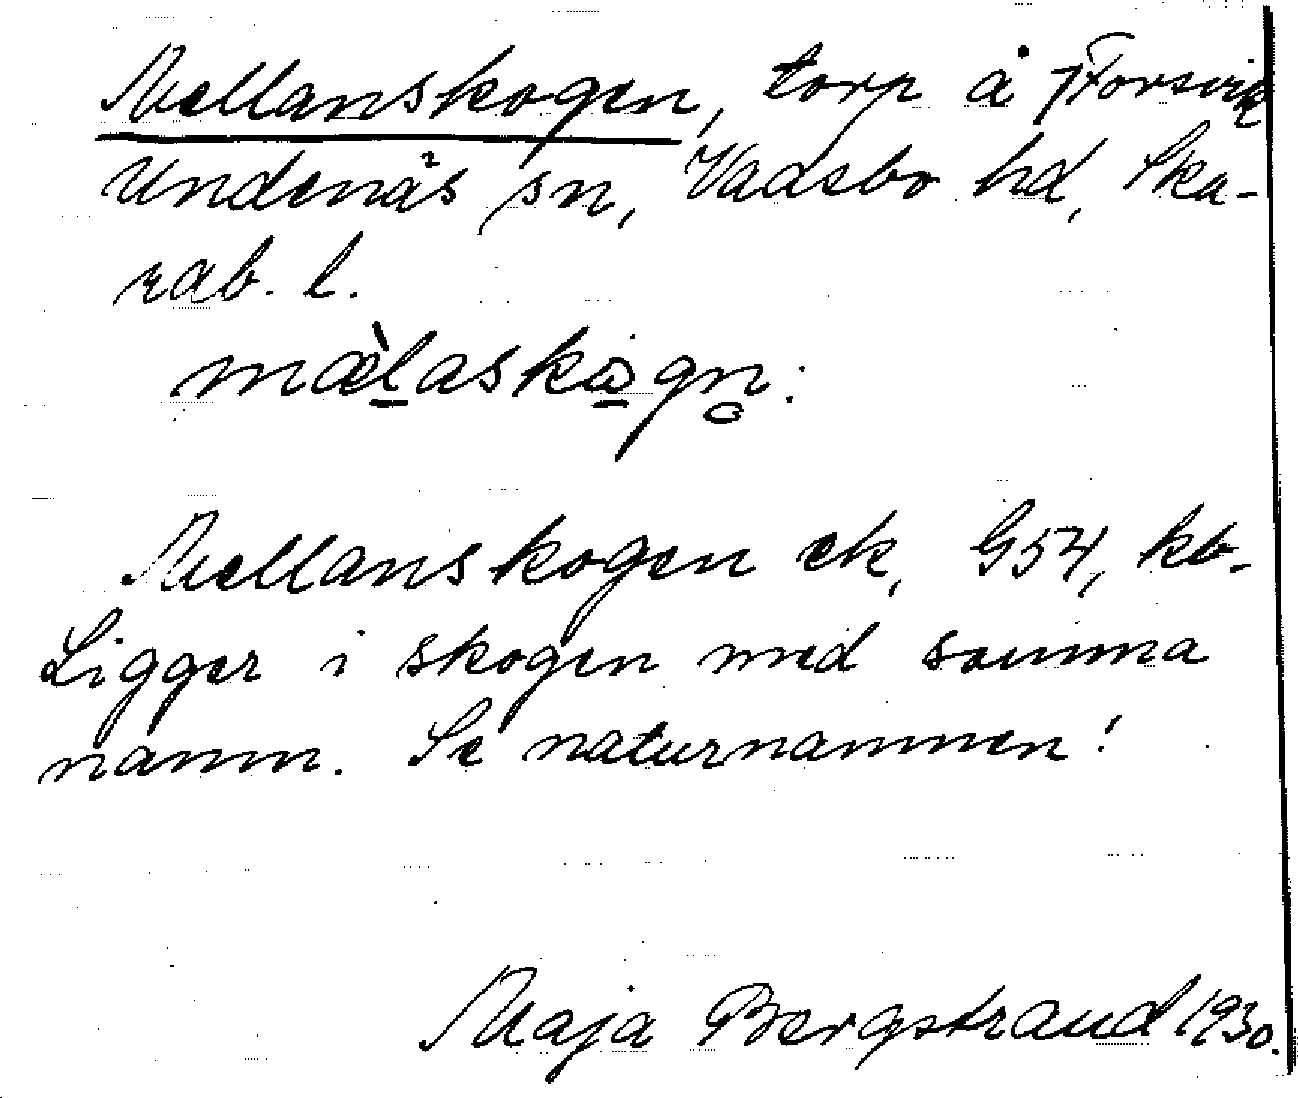 Mellanskogen, torp å Forsvik
Undenäs sn, Vadsbo hd, Ska-
rab. l.
mæ̀l̠askɷ̠gn̥:
Mellanskogen ek, G54, kb.
Ligger i skogen med samma
namn. Se naturnamnen!
Maja Bergstrand 1930.